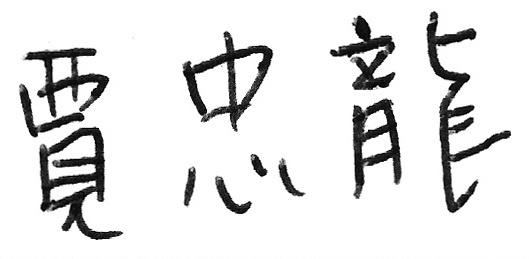 賈忠龍